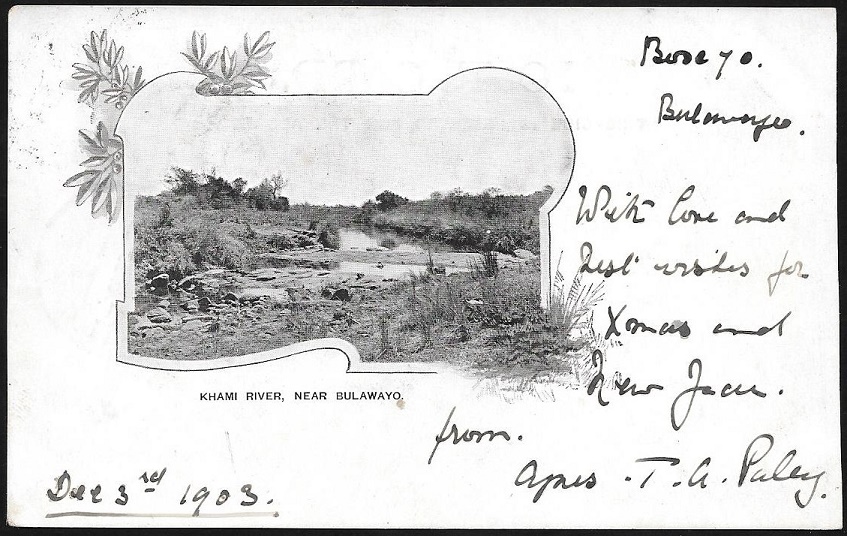 Box 70.
Bulawayo.
With love and
Best wishes for
Xmas and
New Year.
from.
Agnes . T. A. Paley.
KHAMI RIVER, NEAR BULAWAYO.
Dec 3rd 1903.